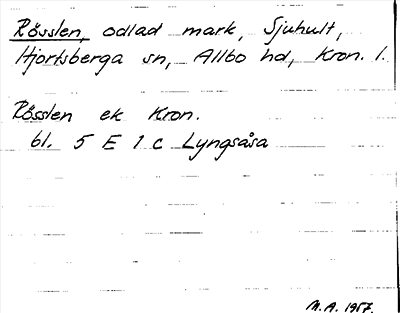 Rösslen, odlad mark, Sjuhult,
Hjortsberga sn, Allbo hd, Kron. l.
Rösslen ek Kron.
bl. 5 E 1 c Lyngsåsa
M.A. 1957.